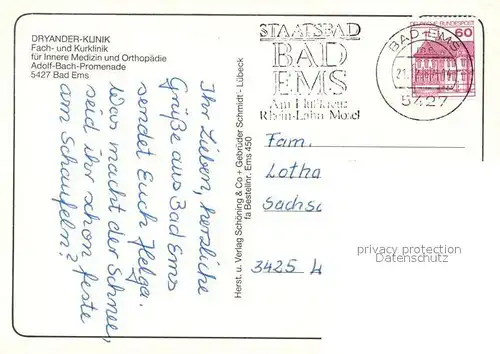 DRYANDER-KLINIK
Fach- und Kurklinik
für Innere Medizin und Orthopädie
Adolf-Bach-Promenade
5427 Bad Ems
Ihr Lieben, herzliche
Grüße aus Bad Ems
sendet Euch Helga.
Was macht der Schnee,
seid ihr schon feste
am Schaufeln?
Herst. u. Verlag Schöning & Co + Gebrüder Schmidt - Lübeck
fa Bestellnr. Ems 450
STAATSBAD
BAD
EMS
Rhein-Lahn Mosel
BAD EMS
5427
DEUTSCHE BUNDESPOST
60
Fam.
Lotha
Sachs
3425
privacy protection
Datenschutz